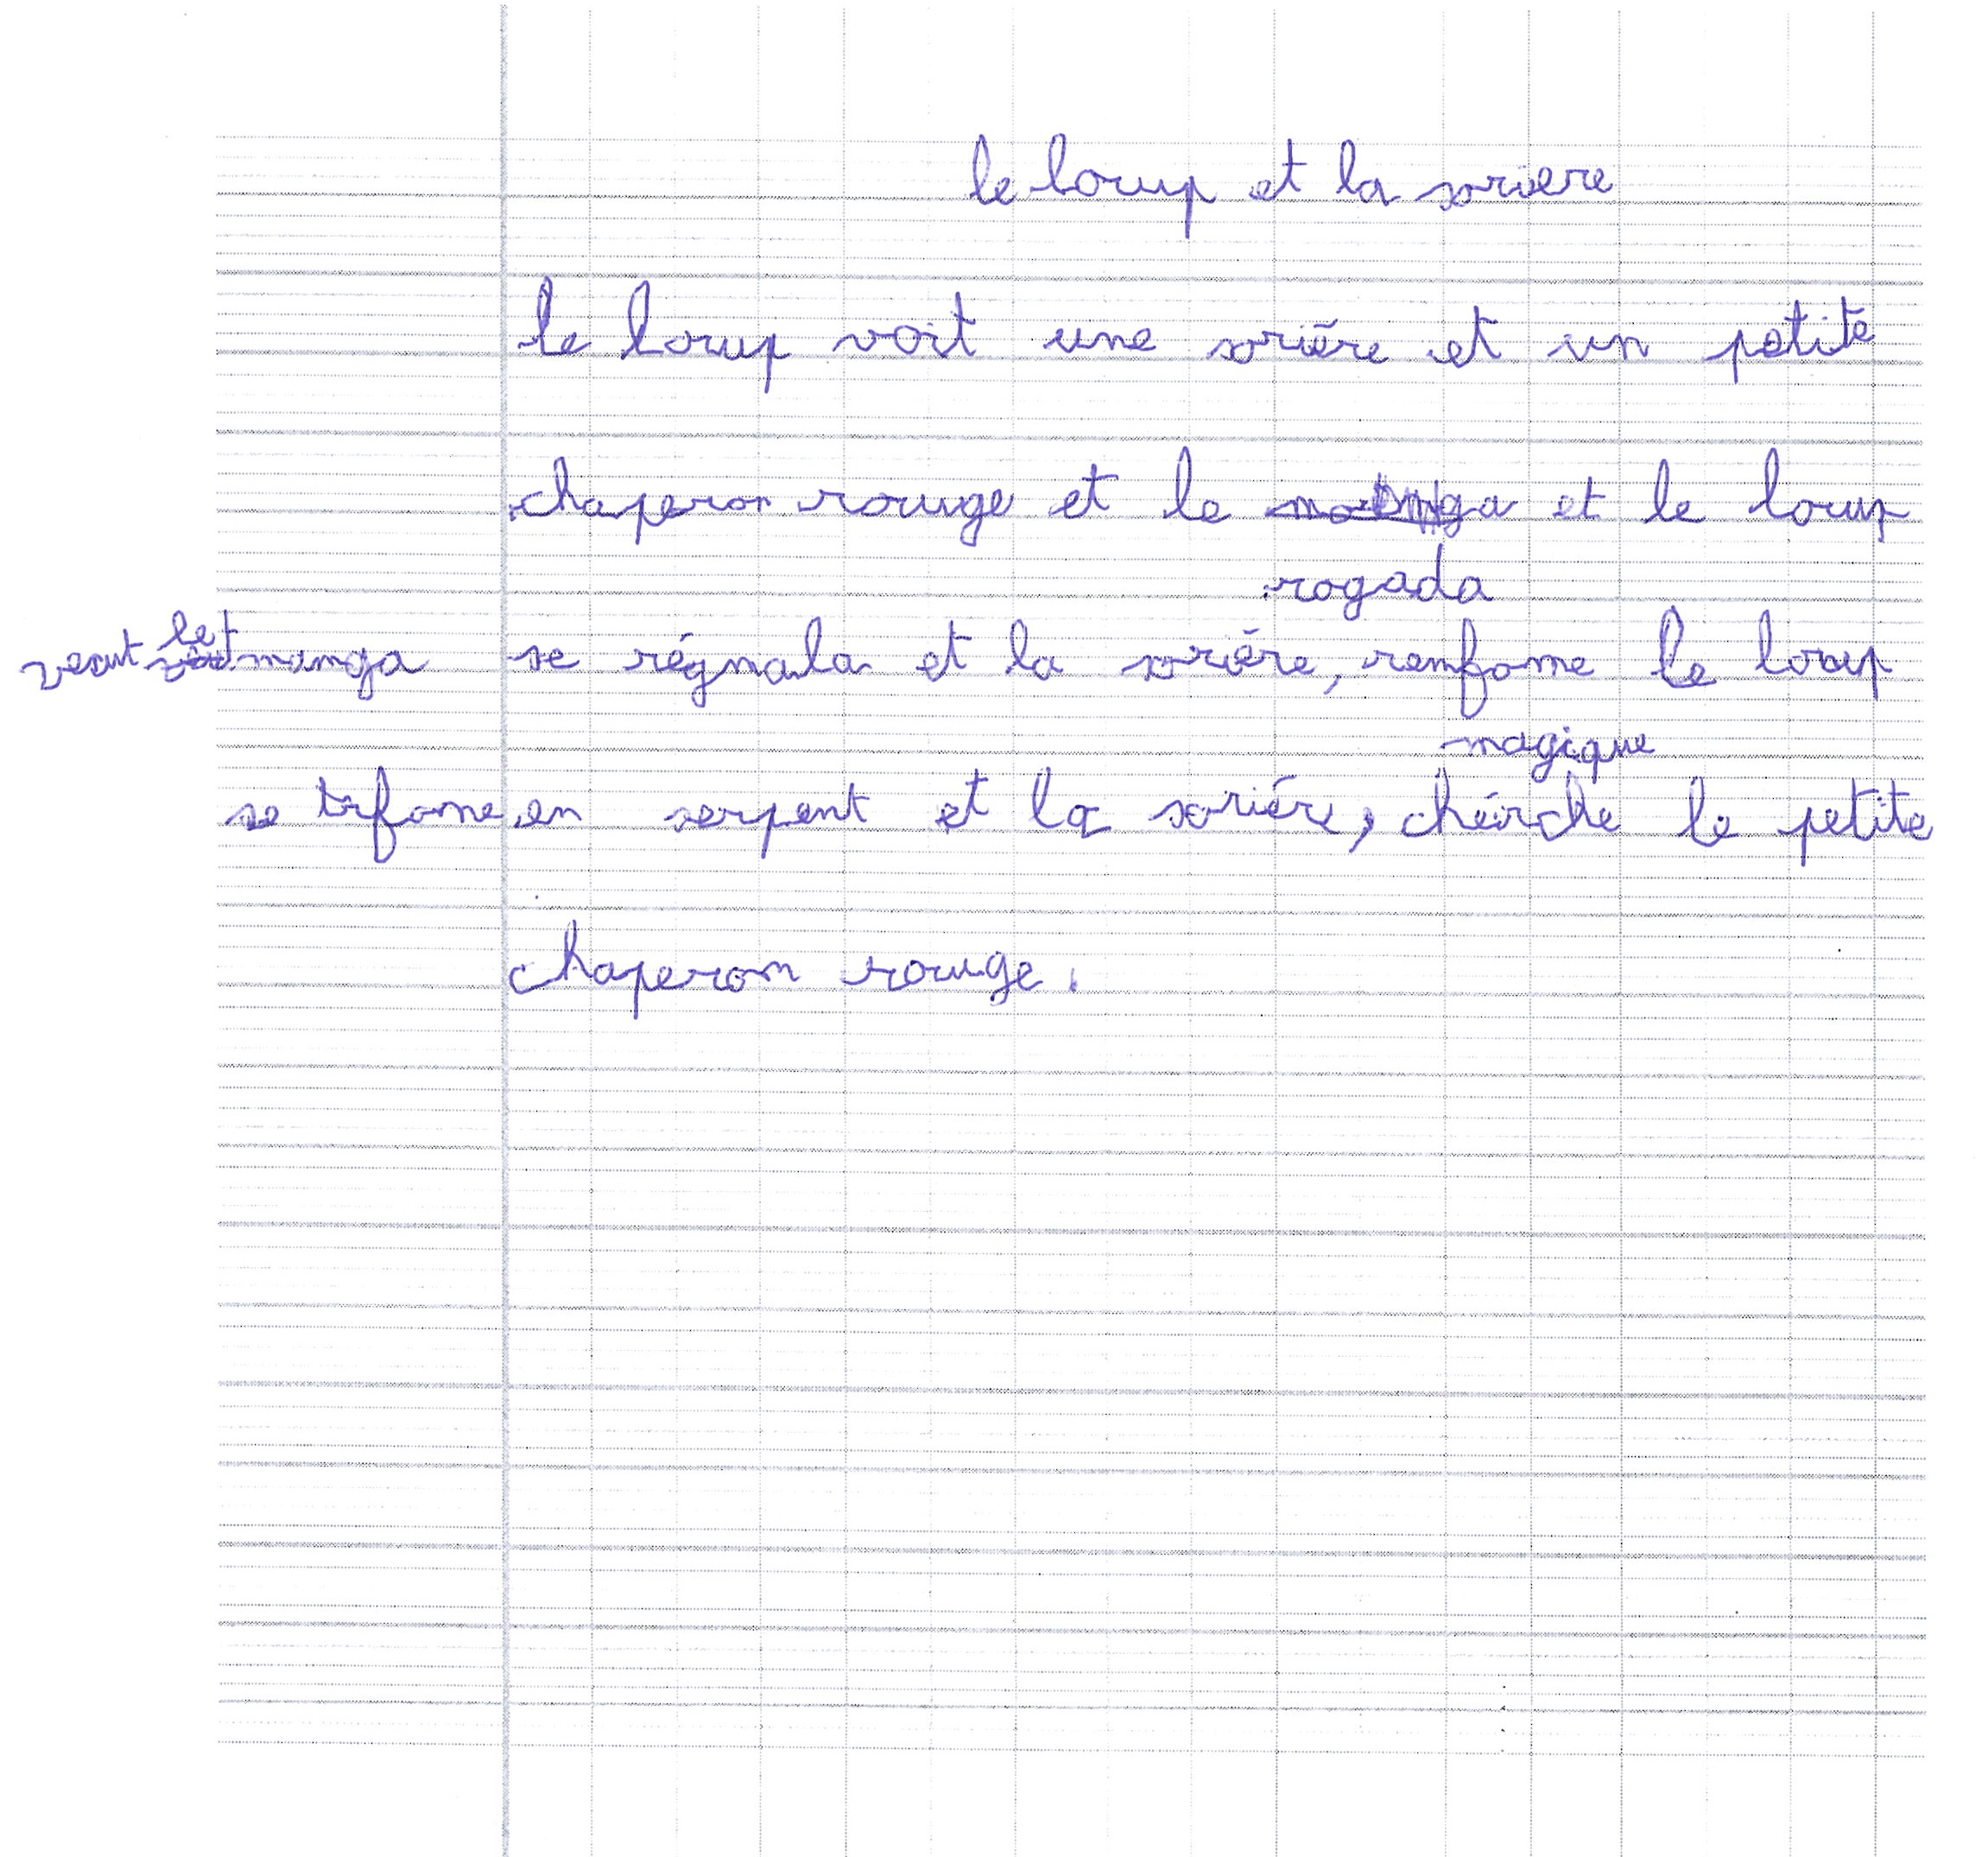 le loup et la soriere
le loup voit une sorière et un petite
chaperon rouge et le manga et le loup
rogada
veut le manga se régnala et la sorière, remfome le loup
magique
se trfome en serpent et la soriére, chérche le petite
chaperon rouge.